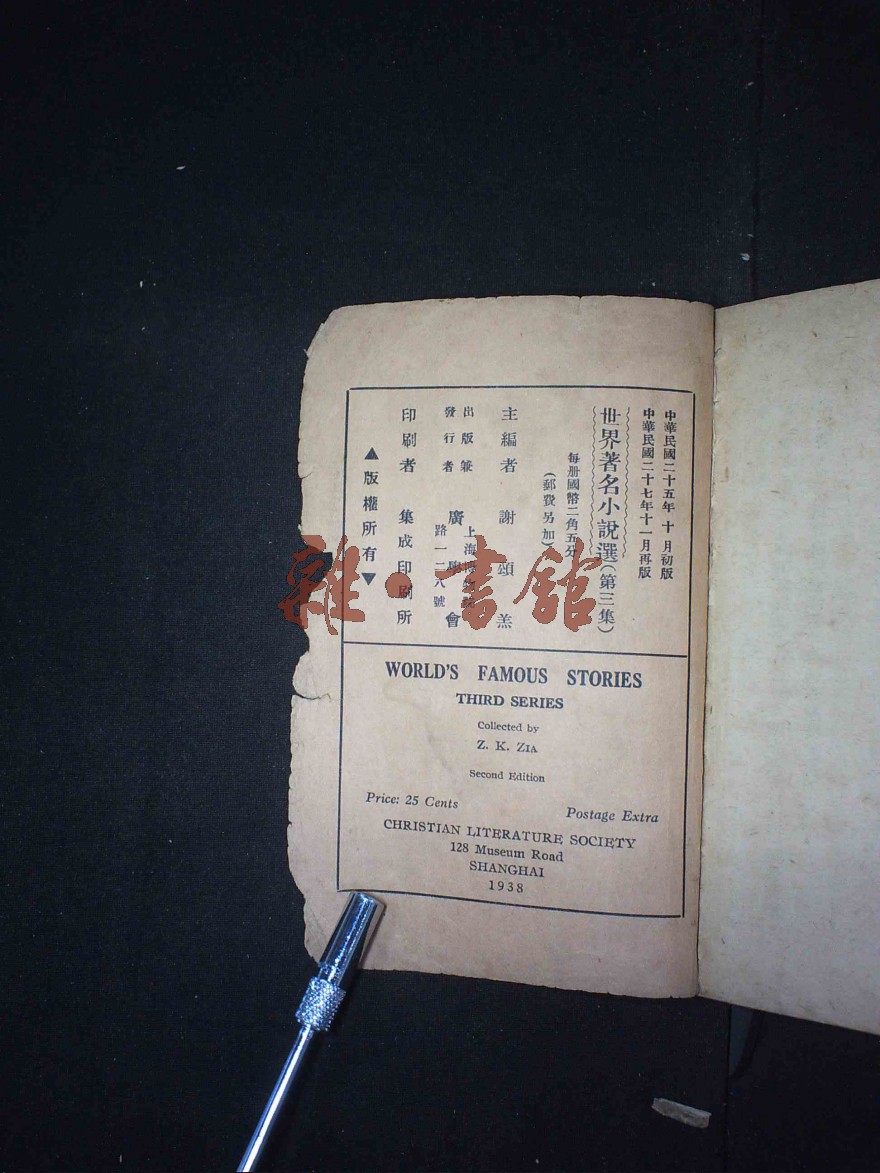 中華民國二十五年十月初版
中華民國二十七年十一月再版
世界著名小說選(第三集)
每册國幣二角五分
(郵費另加)
主編者 謝頌羔
出版兼
發行者
廣學會
上海博物院
路一二八號
印刷者 集成印刷所
▲版權所有▼
WORLD'S FAMOUS STORIES
THIRD SERIES
Collected by
Z. K. ZIA
Second Edition
Price: 25 Cents
Postage Extra
CHRISTIAN LITERATURE SOCIETY
128 Museum Road
SHANGHAI
1938
雜·書館